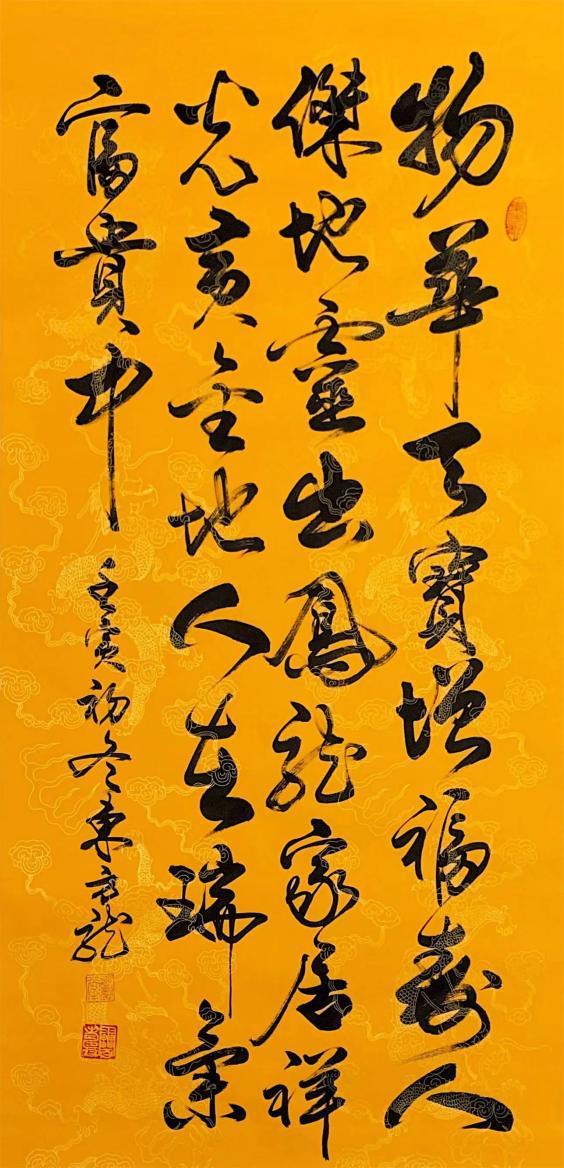 物華天寶增福壽人
傑地靈出鳳龍家居祥
光黃金地人在瑞氣
富貴中
壬寅初冬東方龍